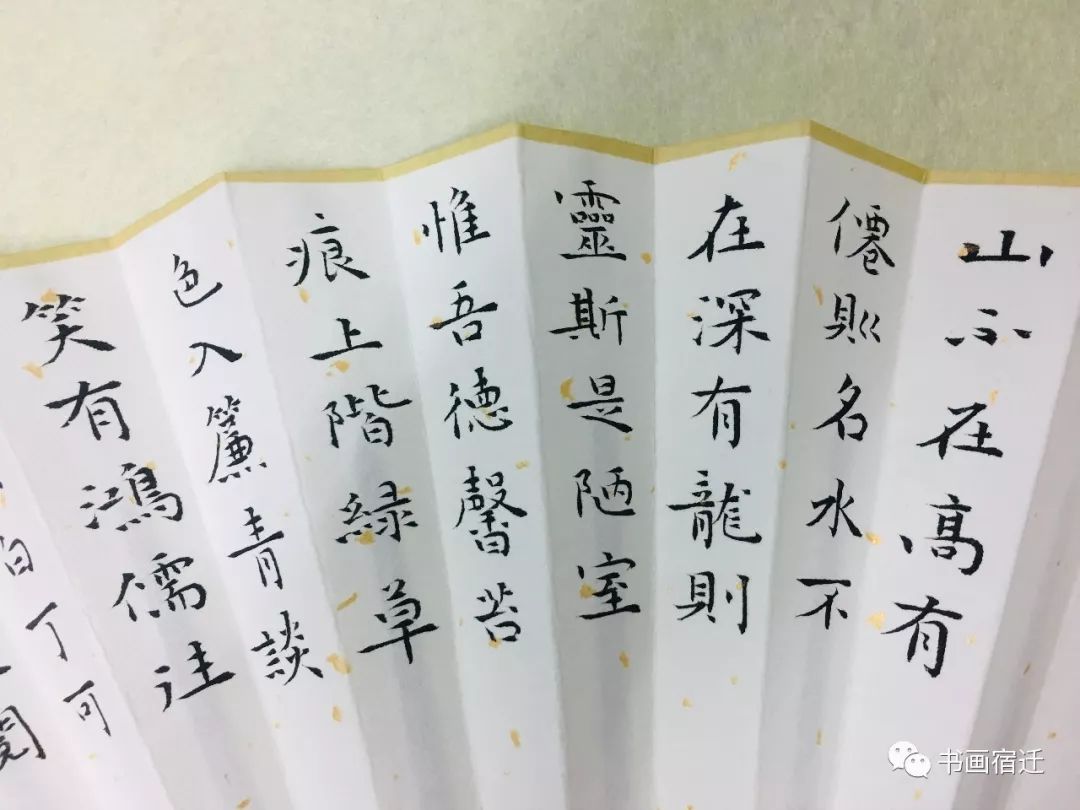 山不在高有
僊則名水不
在深有龍則
靈斯是陋室
惟吾德馨苔
痕上階緑草
色入簾青談
笑有鴻儒往
白丁可
閱
书画宿迁